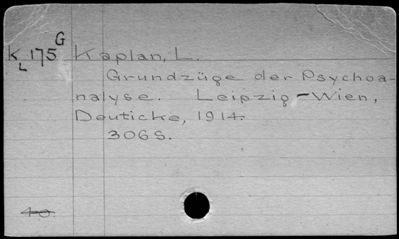 G
K 175 Kaplan, L.
L
Grundzüge der Psychoa-
nalyse. Leipzig-Wien,
Deuticke, 1914.
306 S.
40